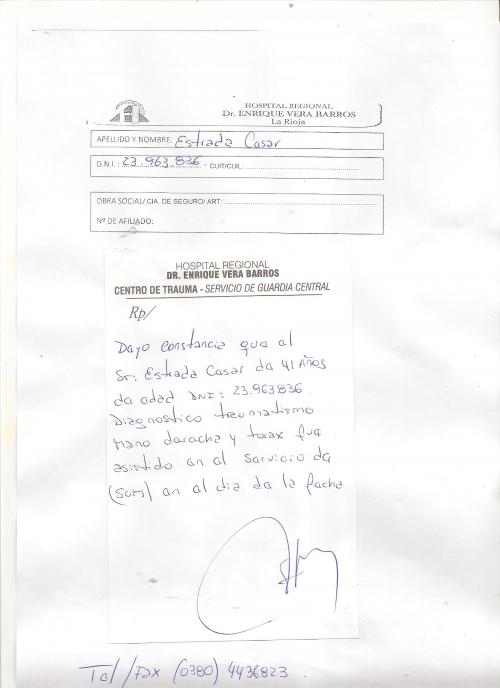 HOSPITAL REGIONAL
Dr. ENRIQUE VERA BARROS
La Rioja
APELLIDO Y NOMBRE: Estrada Cesar
D.N.I.: 23.963.836 - CUIT/CUIL:
OBRA SOCIAL/ CIA. DE SEGURO/ ART:
Nº DE AFILIADO:
HOSPITAL REGIONAL
DR. ENRIQUE VERA BARROS
CENTRO DE TRAUMA - SERVICIO DE GUARDIA CENTRAL
Rp/
Dejo constancia que el
Sr: Estrada Cesar de 41 Años
de edad DNI: 23.963836
Diagnostico traumatismo
mano derecha y torax fue
asistido en el servicio de
(SUM) en el dia de la fecha
Tel/Fax (0380) 4436823